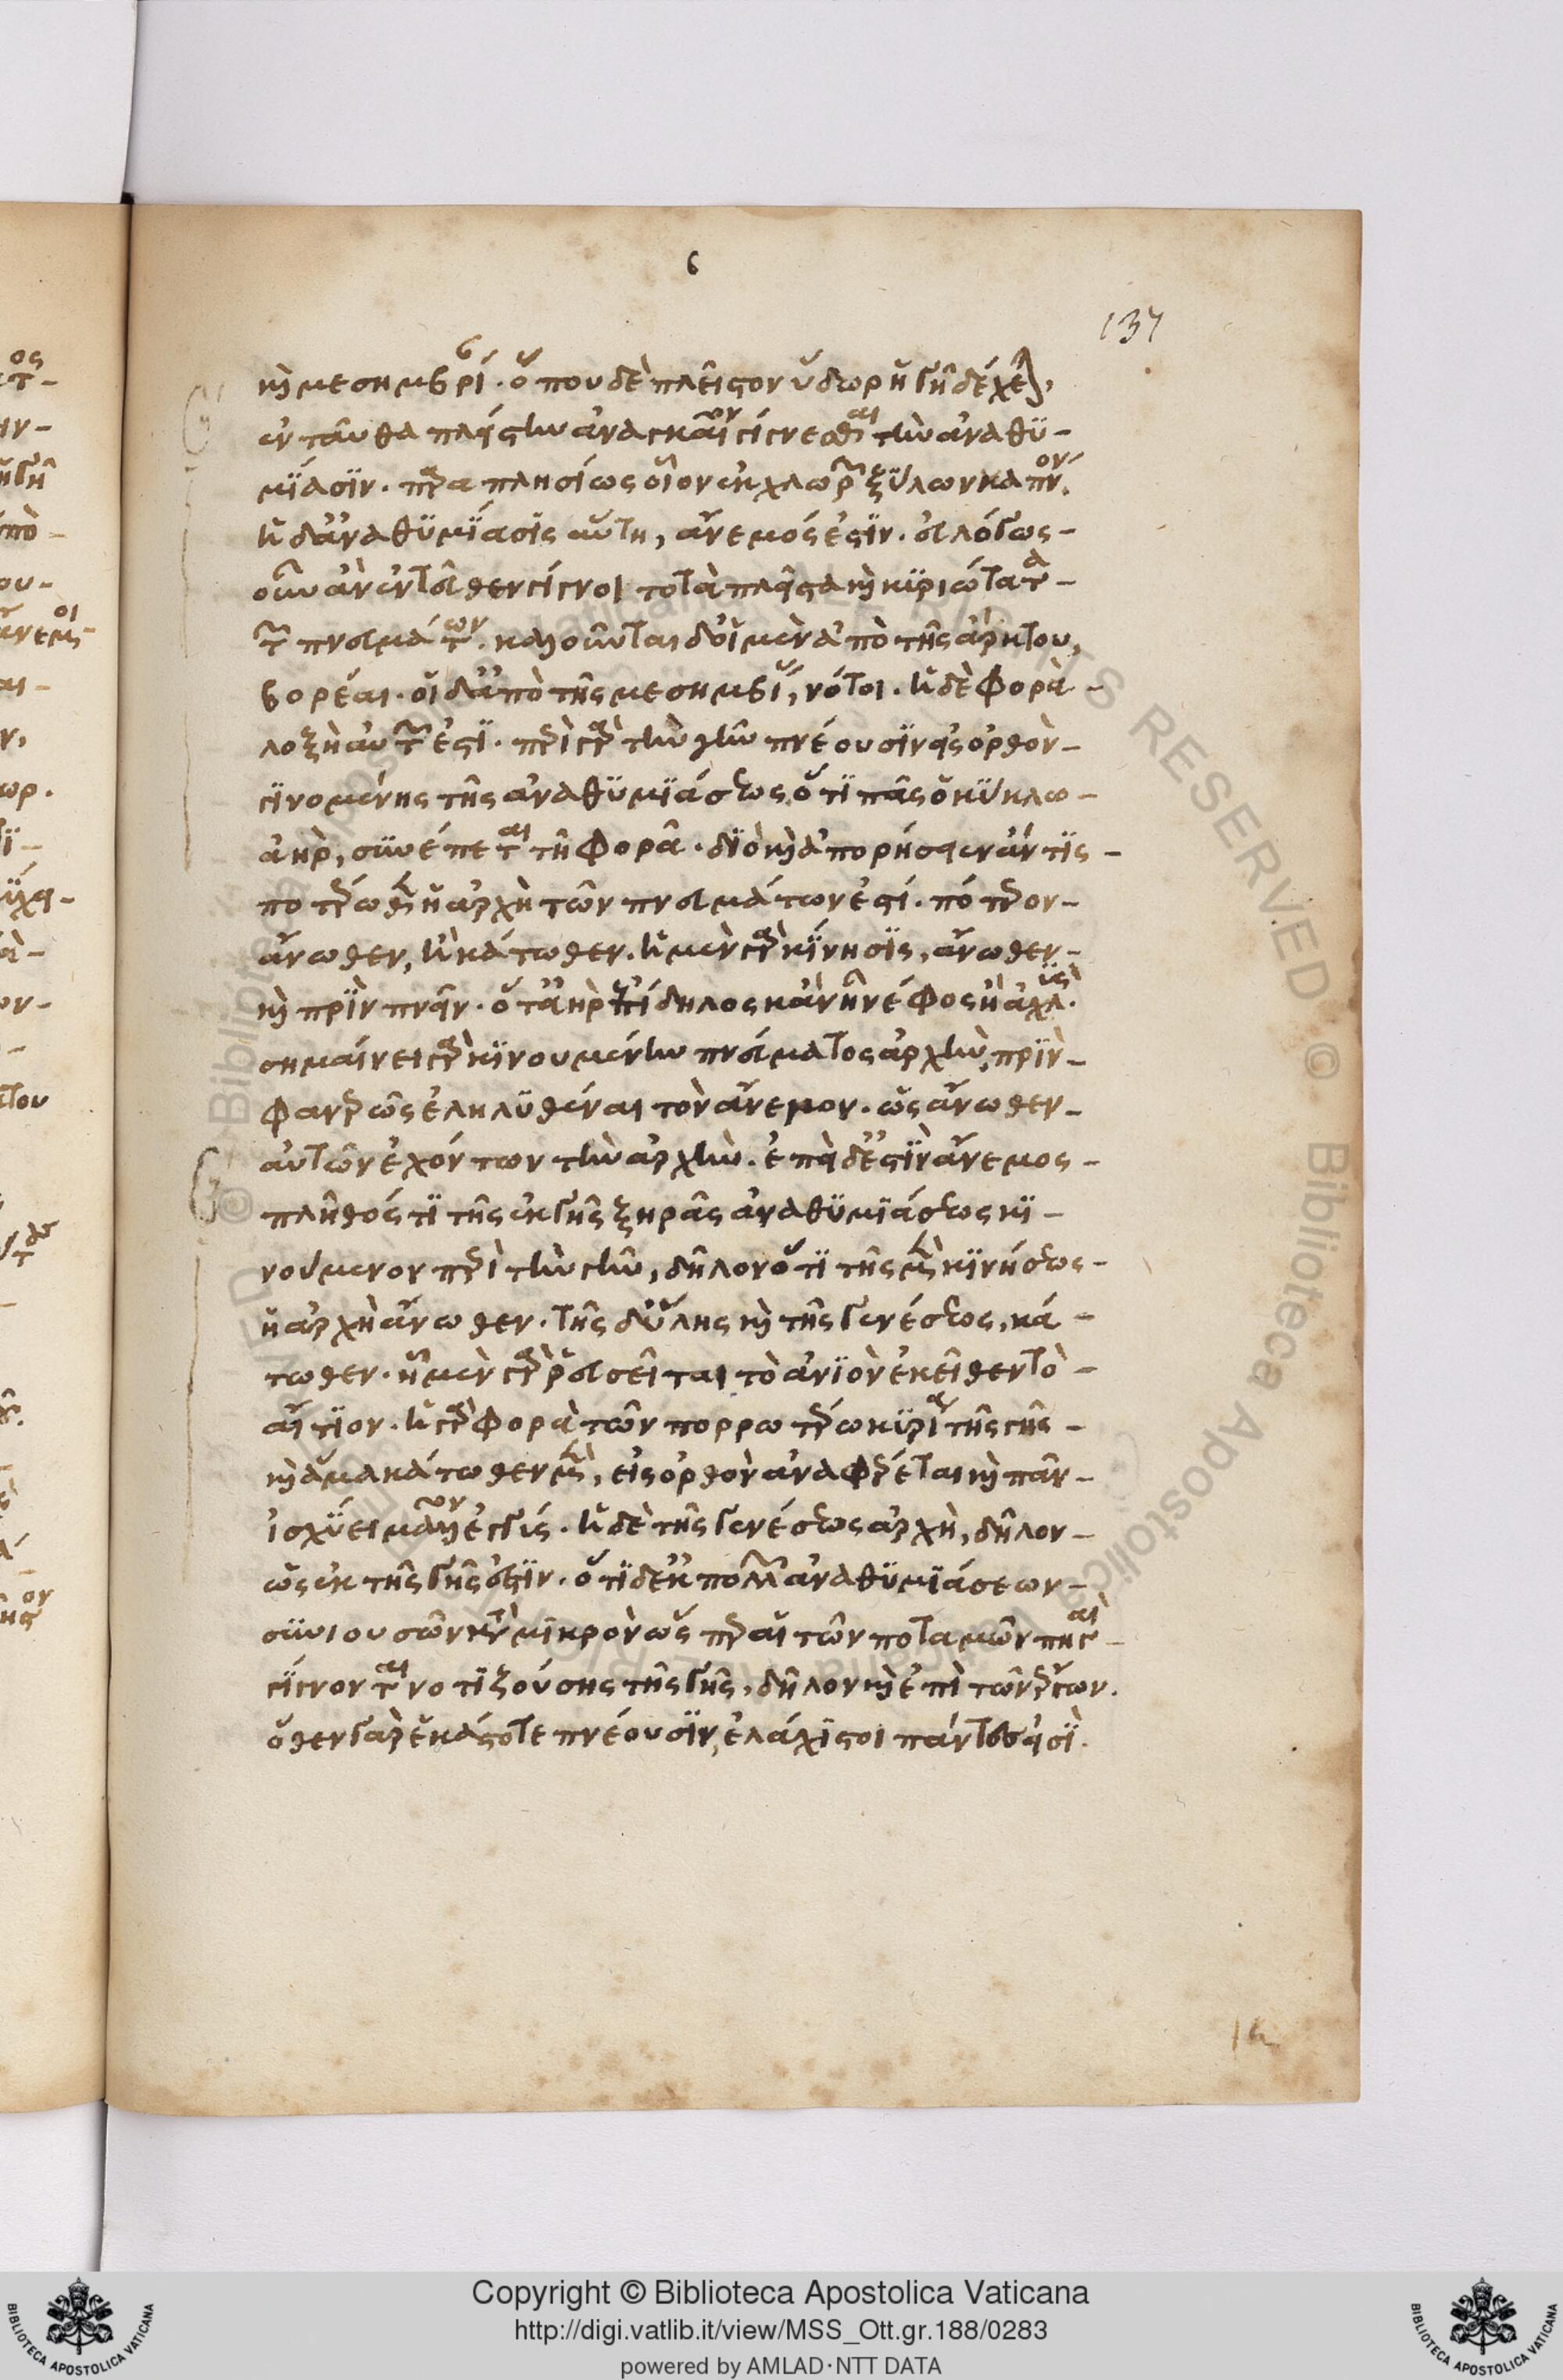 6
137
καὶ μεσημβρί. ὅπου δὲ πλεῖστον ὕδωρ ἡ γῆ δέχεται,
ἐνταῦθα πλείστην ἀναγκαῖον γίγνεσθαι τὴν ἀναθϋ-
μΐασϊν. παραπλησίως οἷον ἐκ χλωρῶν ξύλων καπνόν.
ἡ δ' ἀναθϋμΐασις αὕτη, ἄνεμός ἐστϊν. εὐλόγως-
οὖν ἂν ἐντεῦθεν γίγνοιτο τὰ πλεῖστα καὶ κϋριώτατα-
τῶν πνευμάτων. καλοῦνται δ' οἱ μὲν ἀπὸ τῆς ἄρκτου,
βορέαι. οἱ δ' ἀπὸ τῆς μεσημβΐ, νότοι. ἡ δὲ φορὰ-
λοξὴ αὐτῶν ἐστϊ. περὶ γὰρ τὴν γῆν πνέουσϊν εἰς ὀρθὸν-
γϊνομένης τῆς ἀναθϋμϊάσεως, ὅτϊ πᾶς ὁ κύκλω-
ἀὴρ, συνέπεται τῇ φορᾷ. διὸ καὶ ἀπορήσειεν ἄν τϊς-
ποτέρωθεν ἡ ἀρχὴ τῶν πνευμάτων ἐστί. πότερον-
ἄνωθεν, ἢ κάτωθεν. ἡ μὲν γὰρ κΐνησϊς, ἄνωθεν-
καὶ πρϊν πνεῖν. ὅτ' ἀὴρ ἐπίδηλος κἂν ᾖ νέφος ἢ ἀχλϋς.
σημαίνει γὰρ κϊνουμένην πνεύματος ἀρχὴν, πρϊν-
φανερῶς ἐληλϋθέναι τὸν ἄνεμον. ὡς ἄνωθεν-
αὐτῶν ἐχόντων τὴν ἀρχήν. ἐπεὶ δ' ἐστϊν ἄνεμος-
πλῆθός τϊ τῆς ἐκ γῆς ξηρᾶς ἀναθϋμϊάσεως κϊ-
νούμενον περὶ τὴν γῆν, δῆλον ὅτϊ τῆς μὲν κϊνήσεως-
ἡ ἀρχὴ ἄνωθεν. τῆς δ' ὕλης καὶ τῆς γενέσεως, κά-
τωθεν. ᾗ μὲν γὰρ ῥευσεῖται τὸ ἀνϊὸν ἐκεῖθεν τὸ-
αἴτϊον. ἡ γὰρ φορὰ τῶν πορρωτέρω κϋρία τῆς γῆς-
καὶ ἅμα κάτωθεν μὲν, εἰς ὀρθὸν ἀναφέρεται καὶ πᾶν-
ἰσχύει μᾶλλον ἐγγύς. ἡ δὲ τῆς γενέσεως ἀρχὴ, δῆλον-
ὡς ἐκ τῆς γῆς ἐστϊν. ὅτϊ δ' ἐκ πολλῶν ἀναθϋμϊάσεων-
συνιουσῶν κατὰ μϊκρὸν ὥσπερ αἱ τῶν ποταμῶν πηγαὶ-
γίγνονται νοτϊζούσης τῆς γῆς, δῆλον καὶ ἐπὶ τῶν ἔργων.
ὅθεν γὰρ ἑκάστοτε πνέουσϊν, ἐλάχϊστοι πάντες εἰσΐ.
Copyright © Biblioteca Apostolica Vaticana
http://digi.vatlib.it/view/MSS_Ott.gr.188/0283
powered by AMLAD·NTT DATA